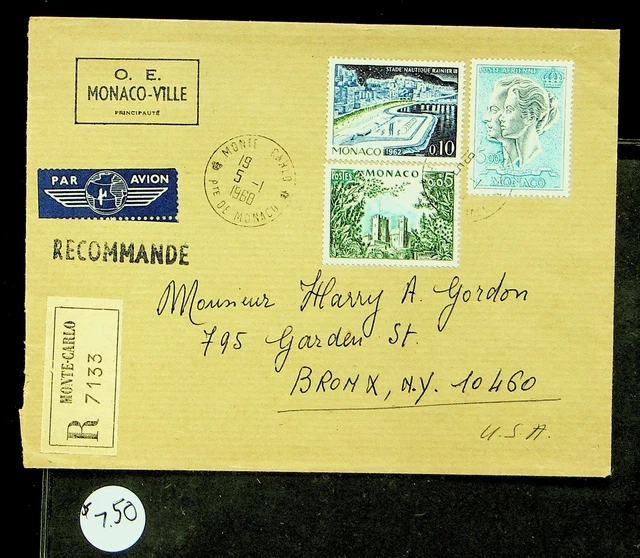 O. E.
MONACO-VILLE
PRINCIPAUTÉ
STADE NAUTIQUE RAINIER III
MONACO 1962 0,10
POSTE AERIENNE
MONACO
POSTES MONACO
MONTE-CARLO
19
5-1
1960
PTE DE MONACO
PAR AVION
RECOMMANDE
MONTE-CARLO
R 7133
Monsieur Harry A. Gordon
795 Garden St.
BRONX, N.Y. 10460
U.S.A.
$7.50